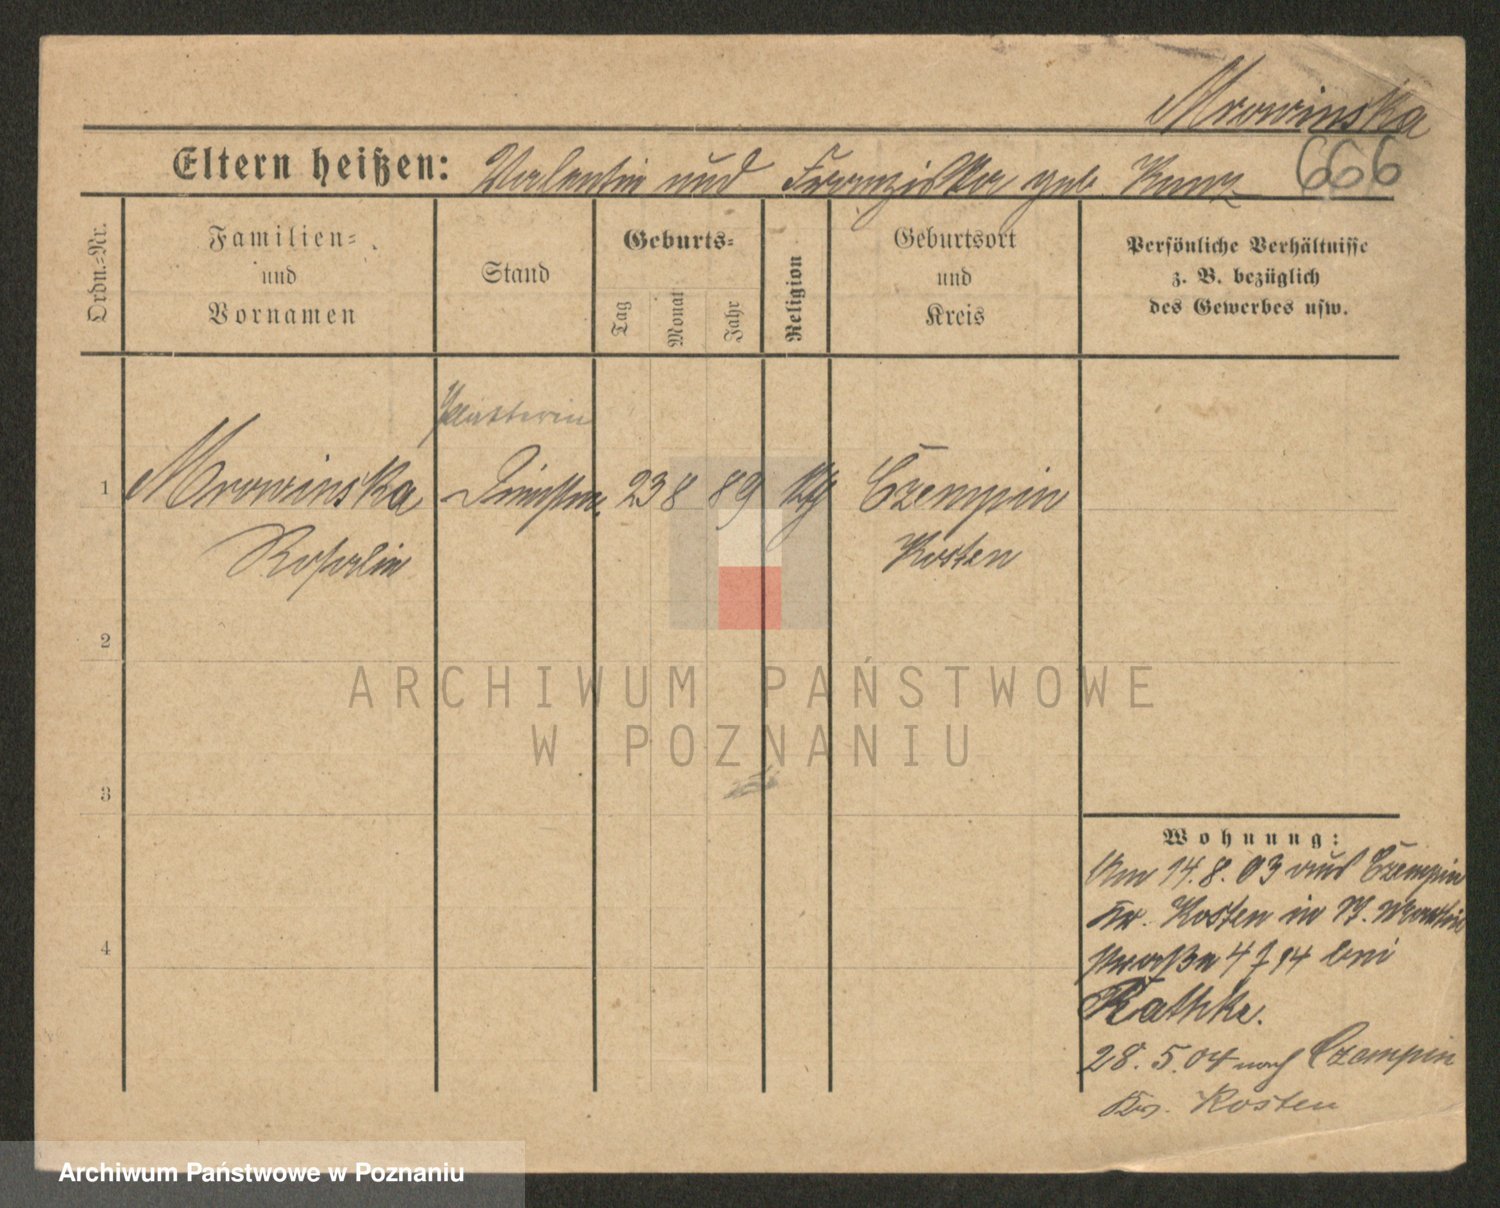 Mrowinska
Eltern heißen: Valentin und Franziska geb. Kunz
666
Ordn.-Nr.
Familien-
und
Vornamen
Stand
Geburts-
Tag
Monat
Jahr
Religion
Geburtsort
und
Kreis
Persönliche Verhältnisse
z. B. bezüglich
des Gewerbes usw.
Plätterin
1 Mrowinska Dienstm. 23 8 89 kth Czempin
Kosten
2
3
4
ARCHIWUM PAŃSTWOWE
W POZNANIU
Wohnung:
Am 14.8.03 aus Czempin
Kr. Kosten in St. Martin
straße 4 bei
Rathke.
28.5.04 nach Czempin
Krs. Kosten
Archiwum Państwowe w Poznaniu